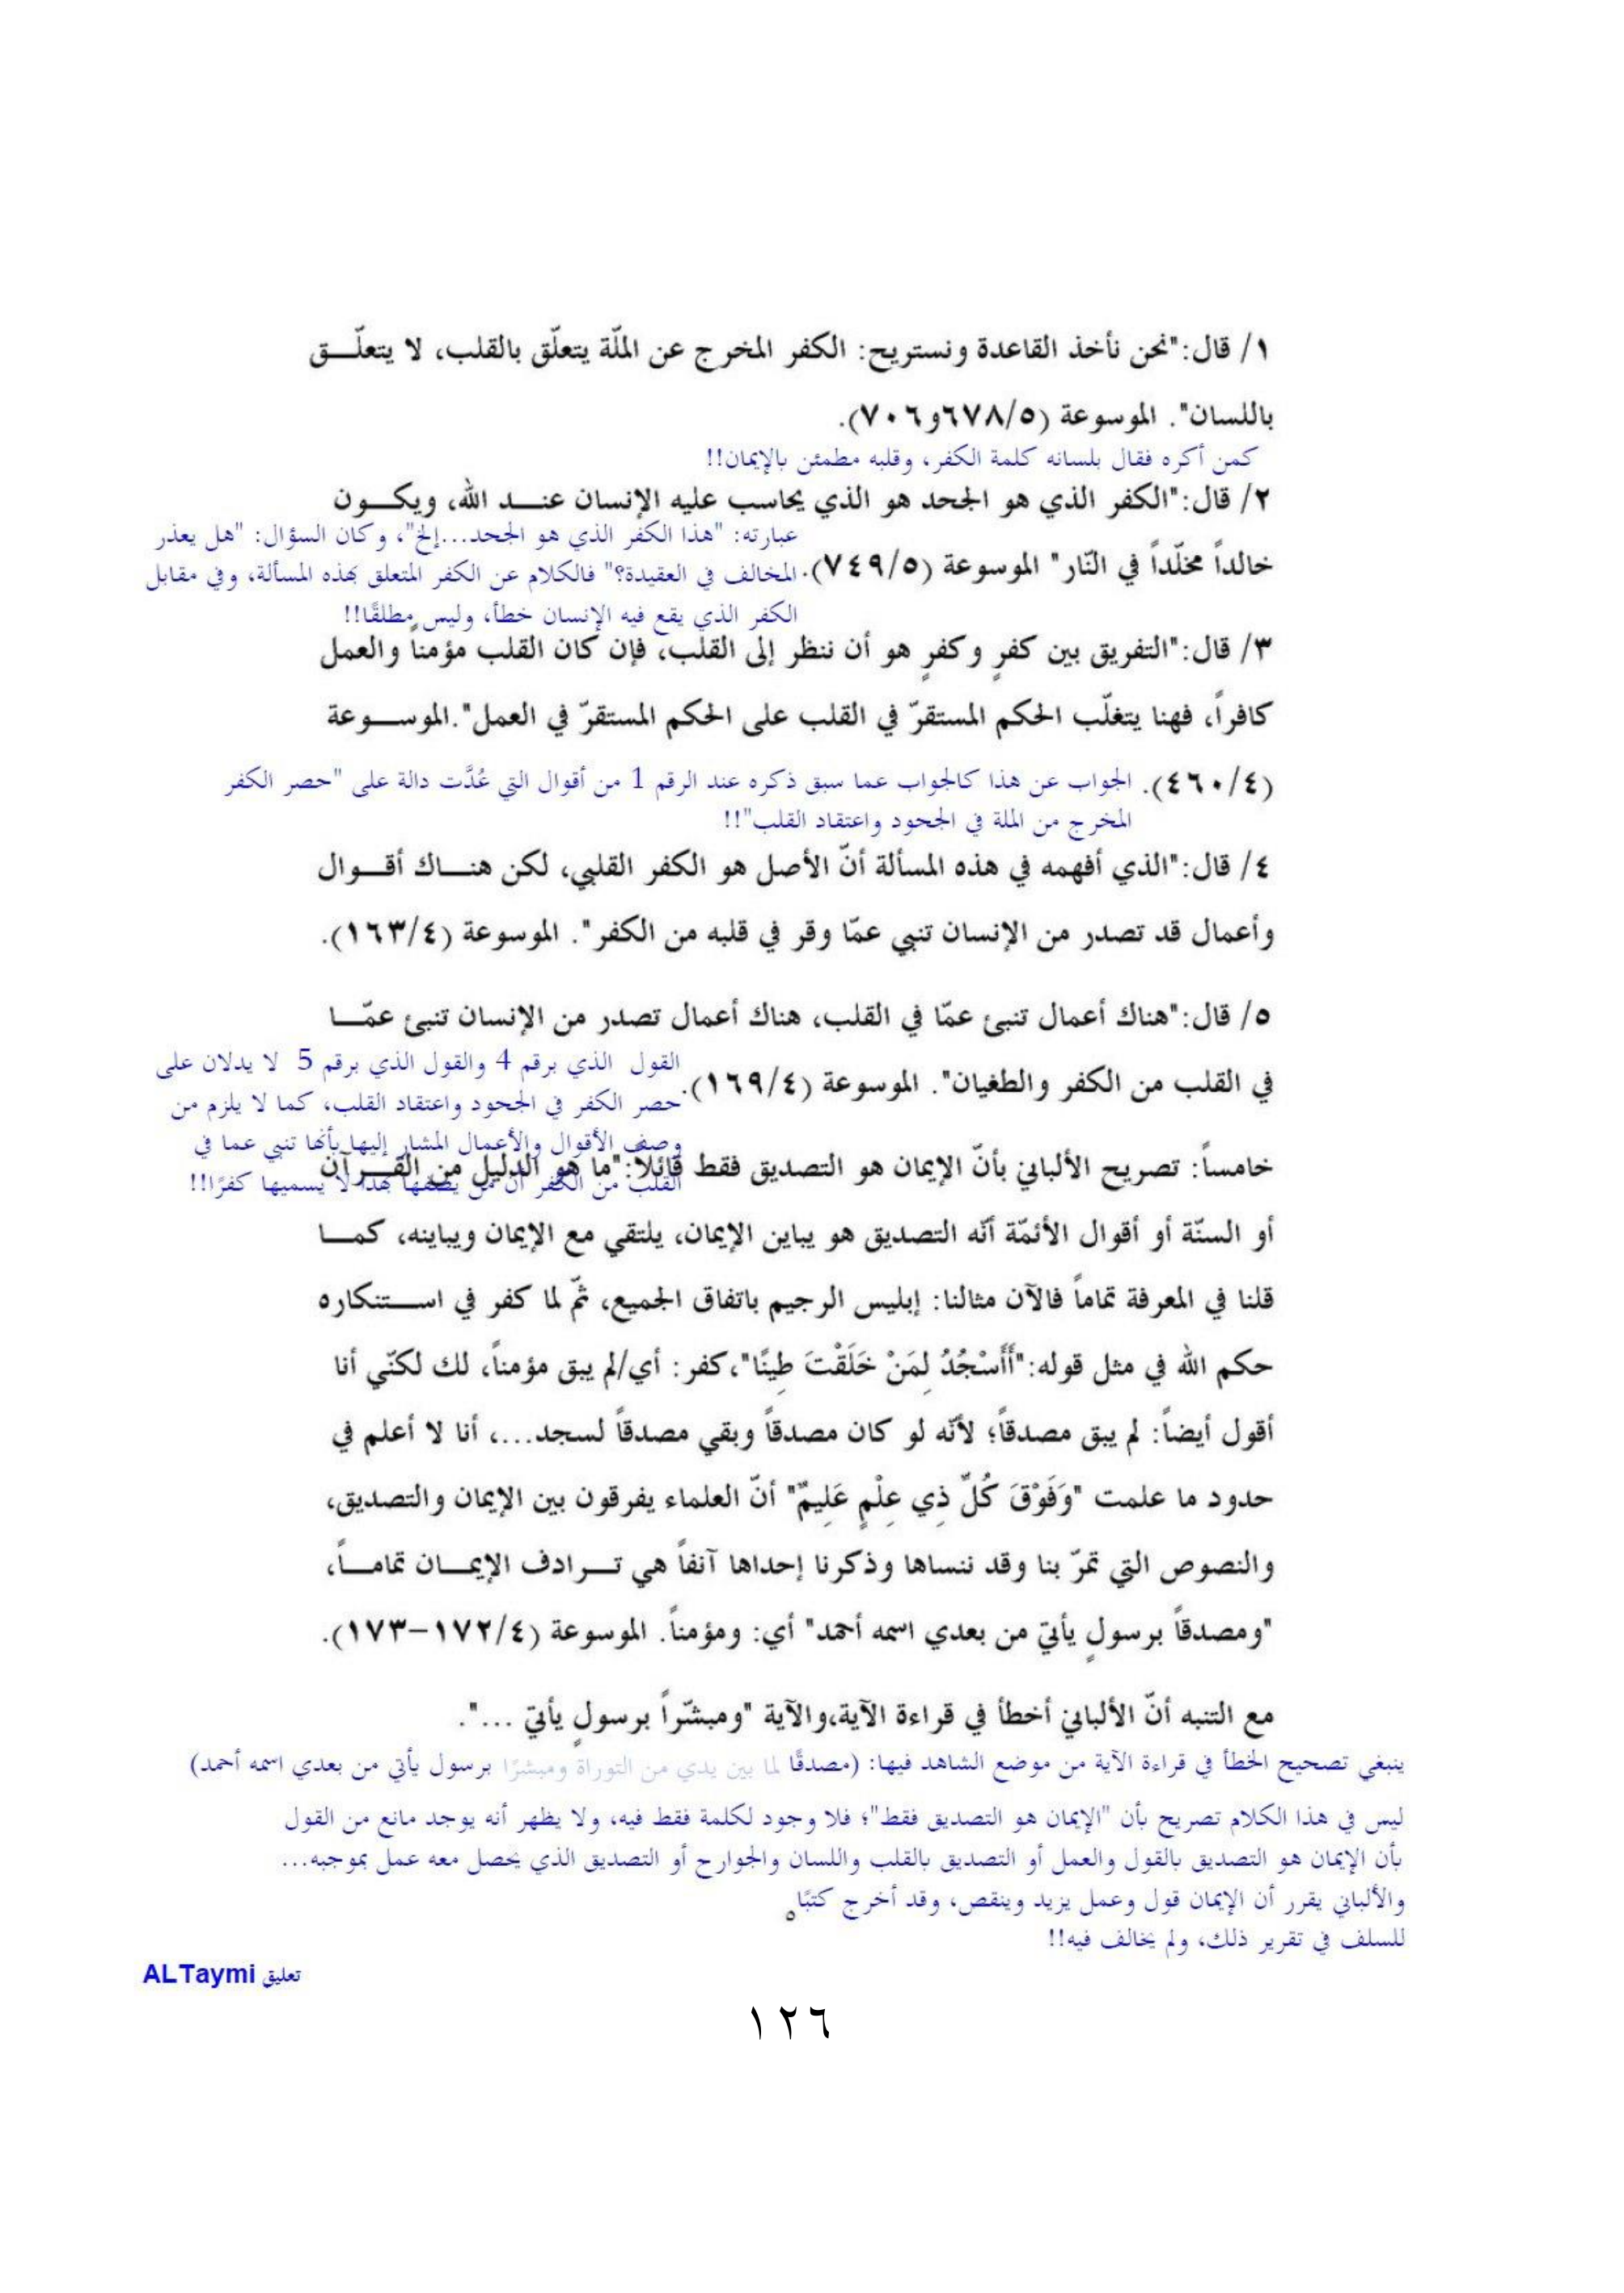 ١/ قال:"نحن نأخذ القاعدة ونستريح: الكفر المخرج عن الملّة يتعلّق بالقلب، لا يتعلّــق
باللسان". الموسوعة (٦٧٨/٥و٧٠٦).
كمن أكره فقال بلسانه كلمة الكفر، وقلبه مطمئن بالإيمان!!
٢/ قال:"الكفر الذي هو الجحد هو الذي يحاسب عليه الإنسان عنــد الله، ويكــون
عبارته: "هذا الكفر الذي هو الجحد...إلخ"، وكان السؤال: "هل يعذر
خالداً مخلّداً في النّار" الموسوعة (٧٤٩/٥).
المخالف في العقيدة؟" فالكلام عن الكفر المتعلق بهذه المسألة، وفي مقابل
الكفر الذي يقع فيه الإنسان خطأ، وليس مطلقًا!!
٣/ قال:"التفريق بين كفرٍ وكفرٍ هو أن ننظر إلى القلب، فإن كان القلب مؤمناً والعمل
كافراً، فهنا يتغلّب الحكم المستقرّ في القلب على الحكم المستقرّ في العمل".الموســوعة
(٤٦٠/٤).
الجواب عن هذا كالجواب عما سبق ذكره عند الرقم 1 من أقوال التي عُدَّت دالة على "حصر الكفر
المخرج من الملة في الجحود واعتقاد القلب"!!
٤/ قال:"الذي أفهمه في هذه المسألة أنّ الأصل هو الكفر القلبي، لكن هنــاك أقــوال
وأعمال قد تصدر من الإنسان تنبي عمّا وقر في قلبه من الكفر". الموسوعة (١٦٣/٤).
٥/ قال:"هناك أعمال تنبئ عمّا في القلب، هناك أعمال تصدر من الإنسان تنبئ عمّــا
في القلب من الكفر والطغيان". الموسوعة (١٦٩/٤).
القول الذي برقم 4 والقول الذي برقم 5 لا يدلان على
حصر الكفر في الجحود واعتقاد القلب، كما لا يلزم من
وصف الأقوال والأعمال المشار إليها بأنها تنبي عما في
القلب من الكفر أن من يصفها بهذا لا يسميها كفرًا!!
خامساً: تصريح الألباني بأنّ الإيمان هو التصديق فقط قائلاً:"ما هو الدليل من القــرآن
أو السنّة أو أقوال الأئمّة أنّه التصديق هو يباين الإيمان، يلتقي مع الإيمان ويباينه، كمــا
قلنا في المعرفة تماماً فالآن مثالنا: إبليس الرجيم باتفاق الجميع، ثمّ لما كفر في اســتنكاره
حكم الله في مثل قوله:"أَأَسْجُدُ لِمَنْ خَلَقْتَ طِينًا"،كفر: أي/لم يبق مؤمناً، لك لكنّي أنا
أقول أيضاً: لم يبق مصدقاً؛ لأنّه لو كان مصدقاً وبقي مصدقاً لسجد...، أنا لا أعلم في
حدود ما علمت "وَفَوْقَ كُلِّ ذِي عِلْمٍ عَلِيمٌ" أنّ العلماء يفرقون بين الإيمان والتصديق،
والنصوص التي تمرّ بنا وقد ننساها وذكرنا إحداها آنفاً هي تــرادف الإيمــان تمامــاً،
"ومصدقاً برسولٍ يأتي من بعدي اسمه أحمد" أي: ومؤمناً. الموسوعة (١٧٢/٤–١٧٣).
مع التنبه أنّ الألباني أخطأ في قراءة الآية،والآية "ومبشّراً برسولٍ يأتي ...".
ينبغي تصحيح الخطأ في قراءة الآية من موضع الشاهد فيها: (مصدقًا لما بين يدي من التوراة ومبشرًا برسول يأتي من بعدي اسمه أحمد)
ليس في هذا الكلام تصريح بأن "الإيمان هو التصديق فقط"؛ فلا وجود لكلمة فقط فيه، ولا يظهر أنه يوجد مانع من القول
بأن الإيمان هو التصديق بالقول والعمل أو التصديق بالقلب واللسان والجوارح أو التصديق الذي يحصل معه عمل بموجبه...
والألباني يقرر أن الإيمان قول وعمل يزيد وينقص، وقد أخرج كتبًا
للسلف في تقرير ذلك، ولم يخالف فيه!!
تعليق ALTaymi
١٢٦